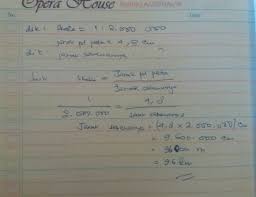 Opera House
No.
Date
dik : Skala = 1 : 2.000.000
jarak pd peta = 4,8 cm
dit : jarak sebenarnya ?
Jwb :
Skala = Jarak pd peta
Jarak sebenarnya
1 = 4,8
2.000.000 Jarak sebenarnya
Jarak sebenarnya = (4,8 x 2.000.000) cm
= 9.600.000 cm
= 96000 m
= 96 km